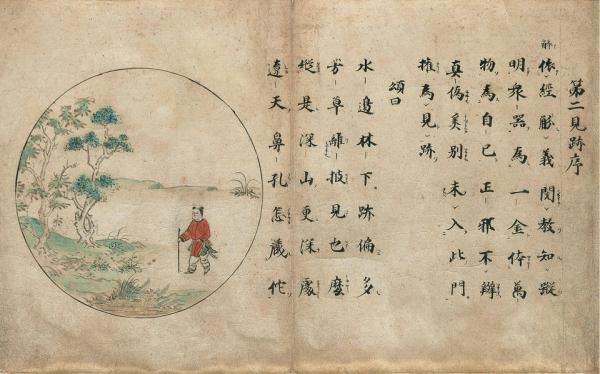 第二見跡序
解
依經勝義閲教知蹤
明衆器為一金体萬
物為自己正邪不辨
真偽奚別未入此門
權為見跡
頌曰
水邊林下跡偏多
芳草離披見也麼
縱是深山更深處
遼天鼻孔怎藏佗